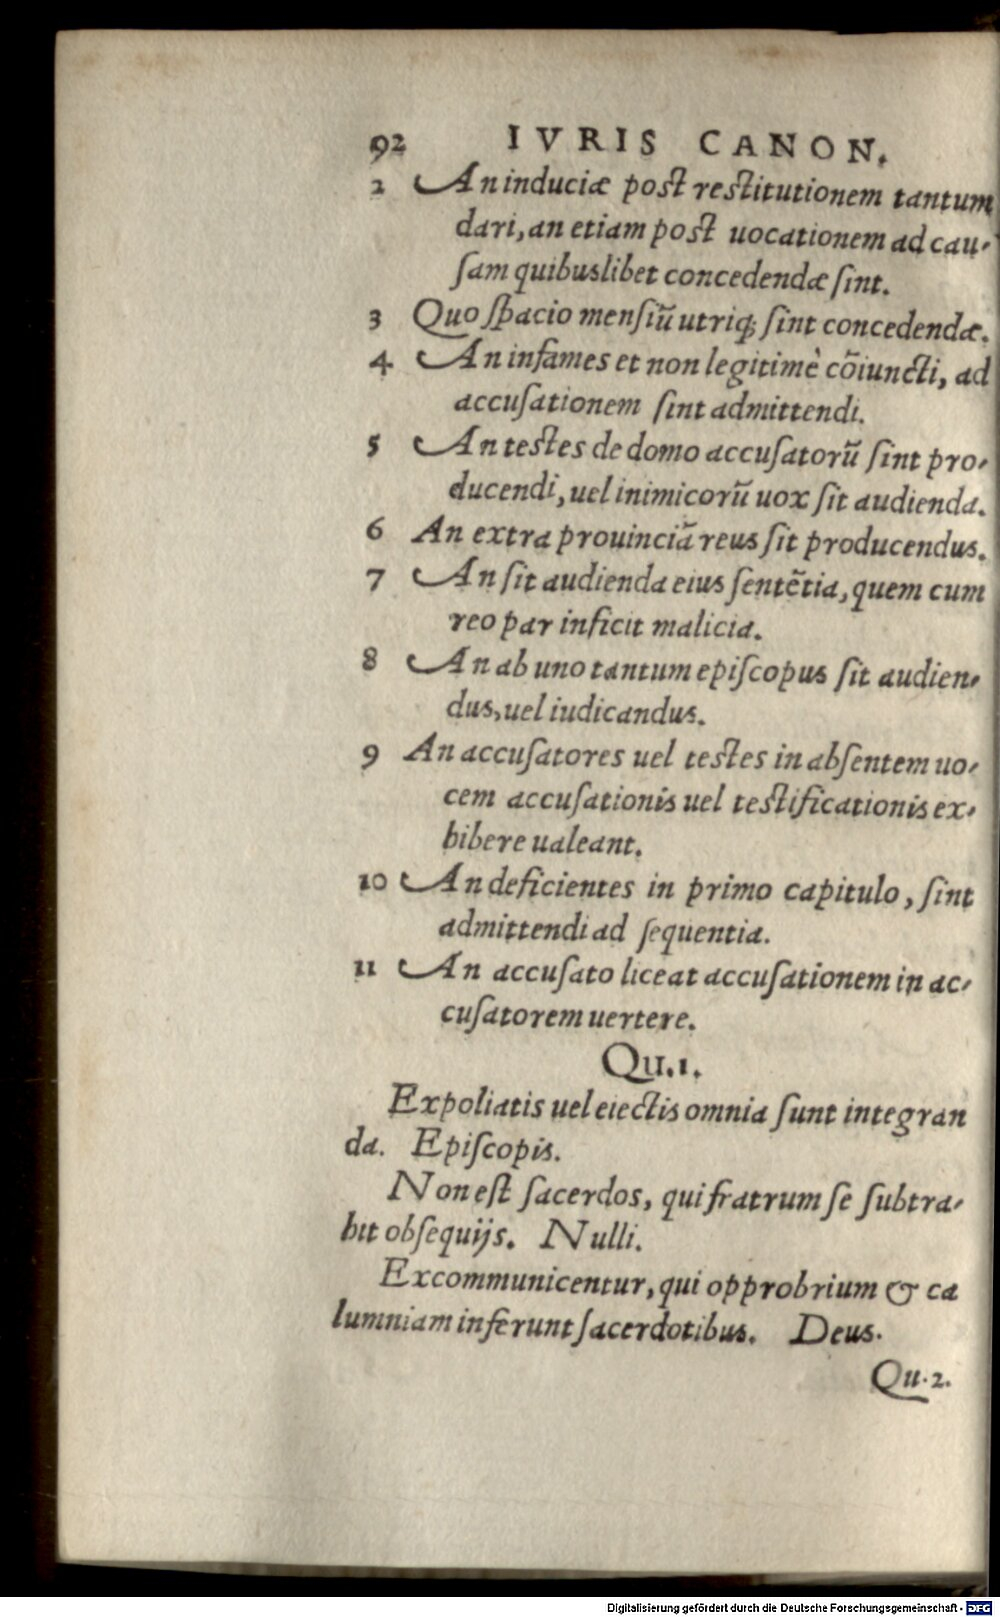 92 IVRIS CANON.
2 An induciæ post restitutionem tantum
dari, an etiam post uocationem ad cau-
sam quibuslibet concedendæ sint.
3 Quo spacio mensiũ utriq; sint concedendæ.
4 An infames et non legitimè cõiuncti, ad
accusationem sint admittendi.
5 An testes de domo accusatorũ sint pro-
ducendi, uel inimicorũ uox sit audienda.
6 An extra prouinciã reus sit producendus.
7 An sit audienda eius sentẽtia, quem cum
reo par inficit malicia.
8 An ab uno tantum episcopus sit audien-
dus, uel iudicandus.
9 An accusatores uel testes in absentem uo-
cem accusationis uel testificationis ex-
hibere ualeant.
10 An deficientes in primo capitulo, sint
admittendi ad sequentia.
11 An accusato liceat accusationem in ac-
cusatorem uertere.
Qu.1.
Expoliatis uel eiectis omnia sunt integran
da. Episcopis.
Non est sacerdos, qui fratrum se subtra-
hit obsequijs. Nulli.
Excommunicentur, qui opprobrium & ca
lumniam inferunt sacerdotibus. Deus.
Qu.2.
Digitalisierung gefördert durch die Deutsche Forschungsgemeinschaft - DFG